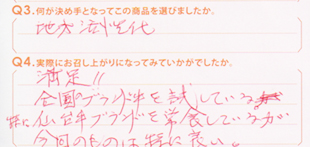 Q3.何が決め手となってこの商品を選びましたか。
地方活性化
Q4.実際にお召し上がりになってみていかがでしたか。
満足!!
全国のブランド牛を試している
特に仙台牛ブランドを常食しているが
今回のものは特に良い。